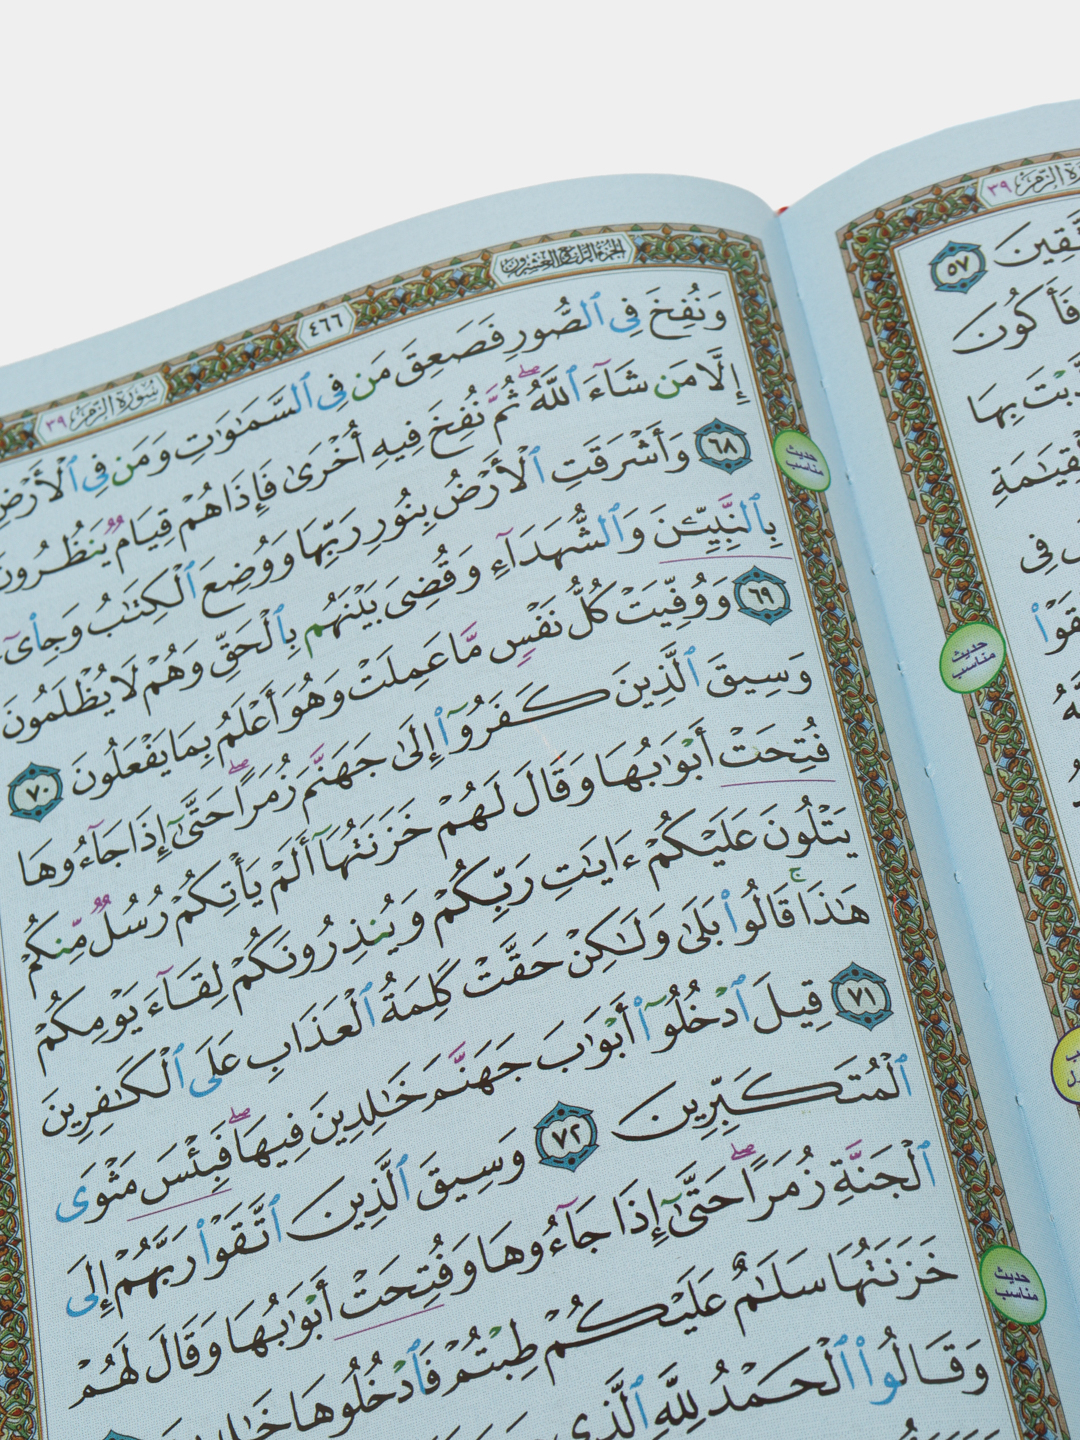 سُورَةُ الزُّمَرِ ٣٩
٤٦٦
الجُزءُ الرَّابِعُ وَالعِشرُونَ
وَنُفِخَ فِى ٱلصُّورِ فَصَعِقَ مَن فِى ٱلسَّمَٰوَٰتِ وَمَن فِى ٱلْأَرْضِ
إِلَّا مَن شَآءَ ٱللَّهُ ۖ ثُمَّ نُفِخَ فِيهِ أُخْرَىٰ فَإِذَا هُمْ قِيَامٌ يَنظُرُونَ
٦٨ وَأَشْرَقَتِ ٱلْأَرْضُ بِنُورِ رَبِّهَا وَوُضِعَ ٱلْكِتَٰبُ وَجِا۟ىٓءَ
بِٱلنَّبِيِّۦنَ وَٱلشُّهَدَآءِ وَقُضِىَ بَيْنَهُم بِٱلْحَقِّ وَهُمْ لَا يُظْلَمُونَ
٦٩ وَوُفِّيَتْ كُلُّ نَفْسٍ مَّا عَمِلَتْ وَهُوَ أَعْلَمُ بِمَا يَفْعَلُونَ ٧٠
وَسِيقَ ٱلَّذِينَ كَفَرُوٓا۟ إِلَىٰ جَهَنَّمَ زُمَرًا ۖ حَتَّىٰٓ إِذَا جَآءُوهَا
فُتِحَتْ أَبْوَٰبُهَا وَقَالَ لَهُمْ خَزَنَتُهَآ أَلَمْ يَأْتِكُمْ رُسُلٌ مِّنكُمْ
يَتْلُونَ عَلَيْكُمْ ءَايَٰتِ رَبِّكُمْ وَيُنذِرُونَكُمْ لِقَآءَ يَوْمِكُمْ
هَٰذَا ۚ قَالُوا۟ بَلَىٰ وَلَٰكِنْ حَقَّتْ كَلِمَةُ ٱلْعَذَابِ عَلَى ٱلْكَٰفِرِينَ
٧١ قِيلَ ٱدْخُلُوٓا۟ أَبْوَٰبَ جَهَنَّمَ خَٰلِدِينَ فِيهَا ۖ فَبِئْسَ مَثْوَى
ٱلْمُتَكَبِّرِينَ ٧٢ وَسِيقَ ٱلَّذِينَ ٱتَّقَوْا۟ رَبَّهُمْ إِلَى
ٱلْجَنَّةِ زُمَرًا ۖ حَتَّىٰٓ إِذَا جَآءُوهَا وَفُتِحَتْ أَبْوَٰبُهَا وَقَالَ لَهُمْ
خَزَنَتُهَا سَلَٰمٌ عَلَيْكُمْ طِبْتُمْ فَٱدْخُلُوهَا
وَقَالُوا۟ ٱلْحَمْدُ لِلَّهِ ٱلَّذِى
حديث مناسب
حديث مناسب
ٱلزُّمَرِ ٣٩
٥٧
فَأَكُونَ
بِهَا
فِى
حديث مناسب